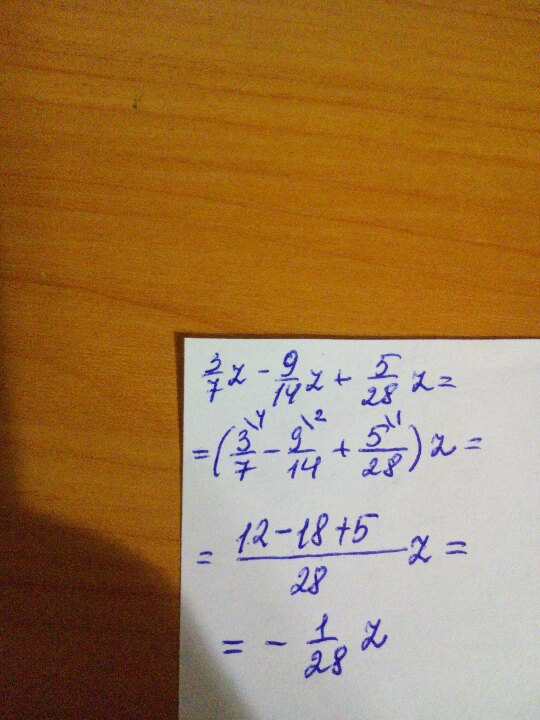 3/7 z - 9/14 z + 5/28 z =
= (3\4/7 - 9\2/14 + 5\1/28) z =
= 12-18+5/28 z =
= - 1/28 z